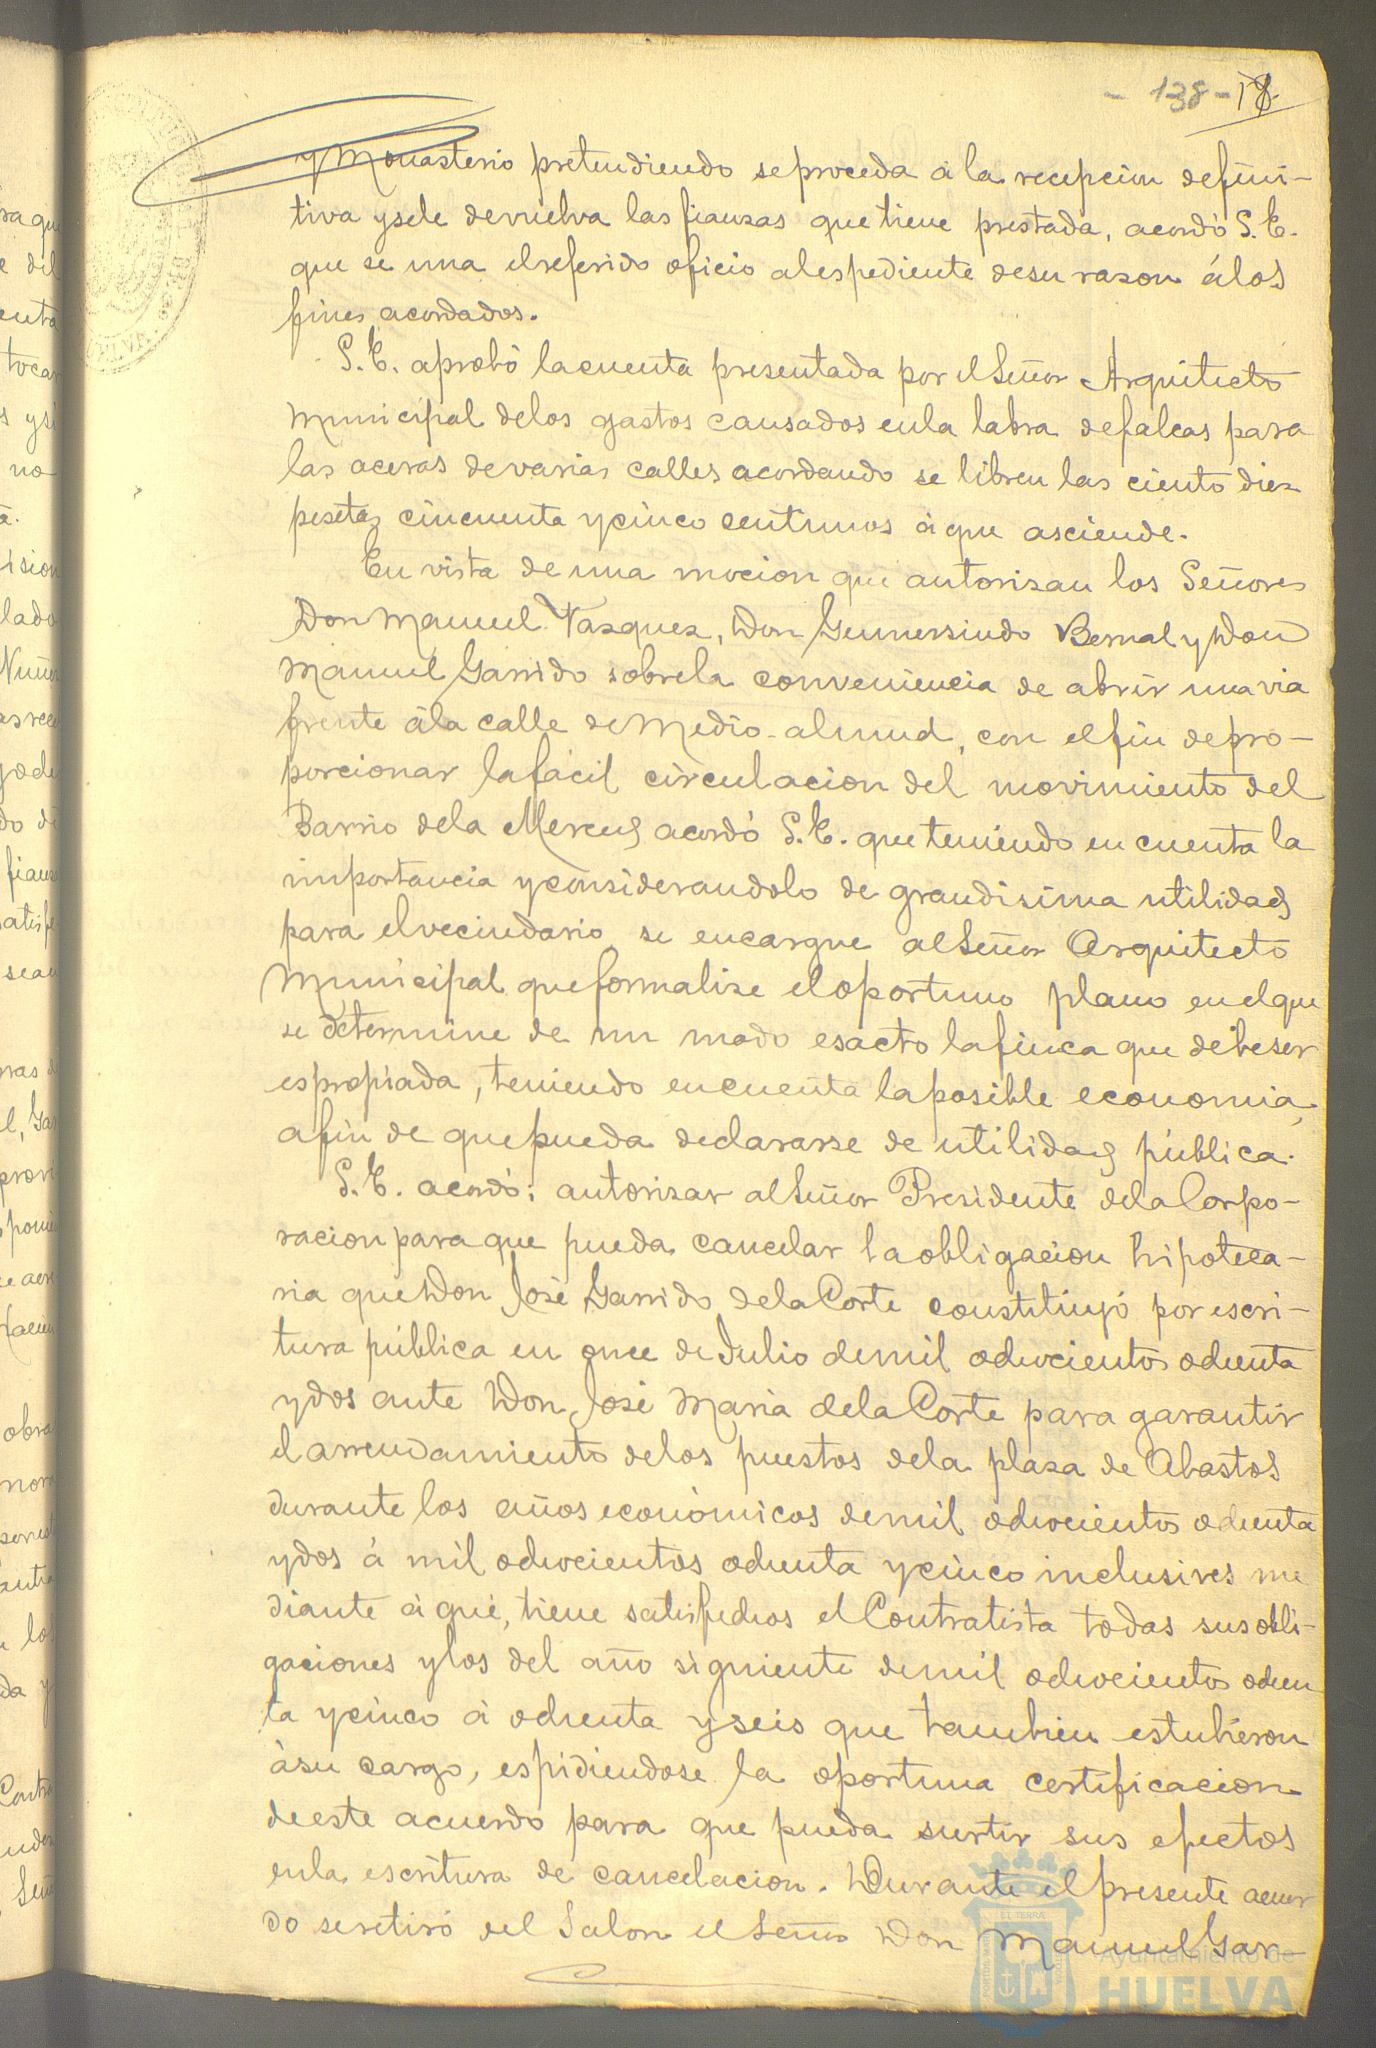 - 138 - 18
y Monasterio pretendiendo se proceda á la recepcion defini-
tiva y se le devuelva las fianzas que tiene prestada, acordó S. E.
que se una el referido oficio al espediente de su razon á los
fines acordados.
S. E. aprobó la cuenta presentada por el Señor Arquitecto
Municipal de los gastos causados en la labra de falcas para
las aceras de varias calles acordando se libren las ciento diez
pesetas cincuenta y cinco centimos á que asciende.
En vista de una mocion que autorizan los Señores
Don Manuel Vazquez, Don Gumersindo Bernal y Don
Manuel Garrido sobre la conveniencia de abrir una via
frente á la calle de Medio-almud, con el fin de pro-
porcionar la fácil circulacion del movimiento del
Barrio de la Merced acordó S. E. que teniendo en cuenta la
importancia y considerandolo de grandisima utilidad
para el vecindario se encargue al Señor Arquitecto
Municipal que formalize el oportuno plano en el que
se determine de un modo esacto la finca que debe ser
espropiada, teniendo en cuenta la posible economia,
a fin de que pueda declararse de utilidad pública.
S. E. acordó: autorizar al Señor Presidente de la Corpo-
racion para que pueda cancelar la obligacion hipoteca-
ria que Don José Garrido de la Corte constituyó por escri-
tura pública en once de Julio de mil ochocientos ochenta
y dos ante Don José Maria de la Corte para garantir
el arrendamiento de los puestos de la plaza de Abastos
durante los años económicos de mil ochocientos ochenta
y dos á mil ochocientos ochenta y cinco inclusives me
diante á que, tiene satisfechos el Contratista todas sus obli-
gaciones y los del año siguiente de mil ochocientos ochen
ta y cinco á ochenta y seis que tambien estubieron
á su cargo, espidiendose la oportuna certificacion
de este acuerdo para que pueda surtir sus efectos
en la escritura de cancelacion. Durante el presente acuer
do se retiró del Salon el Señor Don Manuel Gar-
Ayuntamiento de
HUELVA